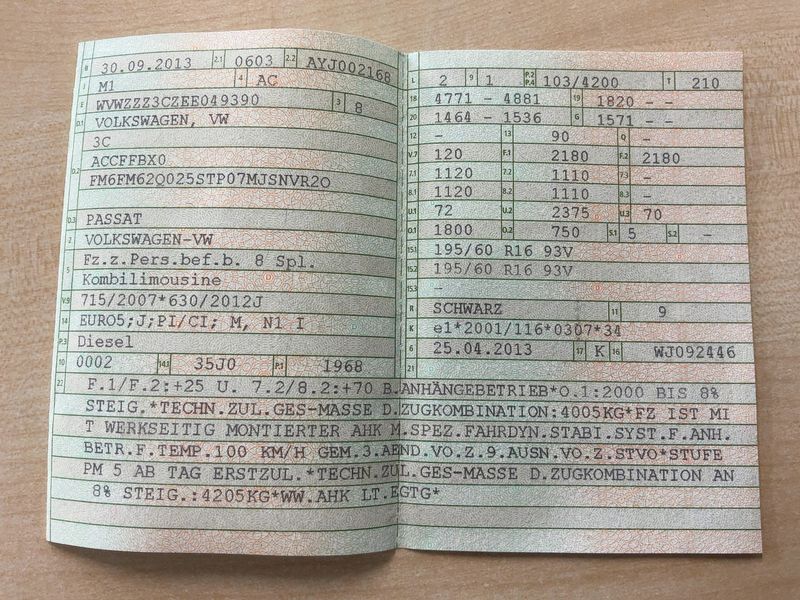 B 30.09.2013 2.1 0603 2.2 AYJ002168
J M1 4 AC
E WVWZZZ3CZEE049390 3 8
D.1 VOLKSWAGEN, VW
3C
D.2 ACCFFBX0
FM6FM62Q025STP07MJSNVR2O
D.3 PASSAT
2 VOLKSWAGEN-VW
5 Fz.z.Pers.bef.b. 8 Spl.
Kombilimousine
V.9 715/2007*630/2012J
14 EURO5;J;PI/CI; M, N1 I
P.3 Diesel
10 0002 14.1 35J0 P.1 1968
L 2 9 1 P.2 P.4 103/4200 T 210
18 4771 - 4881 19 1820 - -
20 1464 - 1536 G 1571 - -
12 - 13 90 Q -
V.7 120 F.1 2180 F.2 2180
7.1 1120 7.2 1110 7.3 -
8.1 1120 8.2 1110 8.3 -
U.1 72 U.2 2375 U.3 70
O.1 1800 O.2 750 S.1 5 S.2 -
15.1 195/60 R16 93V
15.2 195/60 R16 93V
15.3 -
R SCHWARZ 11 9
K e1*2001/116*0307*34
6 25.04.2013 17 K 16 WJ092446
21
22 F.1/F.2:+25 U. 7.2/8.2:+70 B.ANHÄNGEBETRIEB*O.1:2000 BIS 8%
STEIG.*TECHN.ZUL.GES-MASSE D.ZUGKOMBINATION:4005KG*FZ IST MI
T WERKSEITIG MONTIERTER AHK M.SPEZ.FAHRDYN.STABI.SYST.F.ANH.
BETR.F.TEMP.100 KM/H GEM.3.AEND.VO.Z.9.AUSN.VO.Z.STVO*STUFE
PM 5 AB TAG ERSTZUL.*TECHN.ZUL.GES-MASSE D.ZUGKOMBINATION AN
8% STEIG.:4205KG*WW.AHK LT.EGTG*